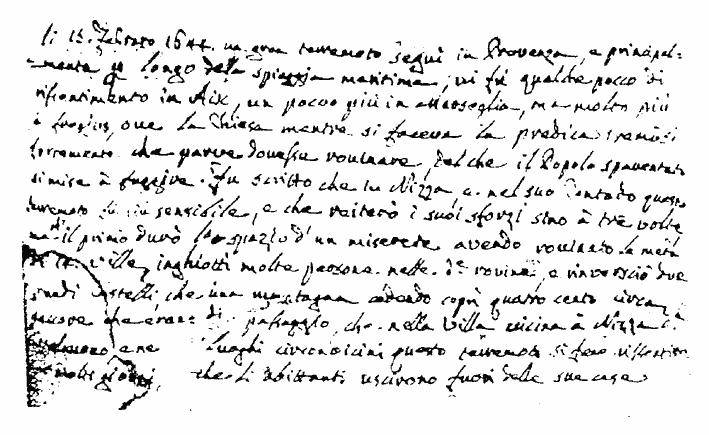 li 15. Febraro 1644. un gran terremoto seguì in Provenza, e principal-
mente longo della spiaggia maritima, vi fù qualche pocco di
risentimento in Aix, un pocco più in Marseglia, ma molto più
à freGius, ove la Chiesa mentre si faceva la predica tremò si
fortemente che parve dovesse rouinare, del che il Popolo spaventato
si mise à fuggire. Fu scritto che in Nizza, e nel suo Contado questo
terremoto fu più sensibile, e che reiterò i suoi sforzi sino à tre volte
il primo durò lo spazio d'un miserere avendo rouinato la metà
di ville, inghiottì molte persone nelle d.e rovine, e rinversciò due
Castelli che una montagna cadendo coprì quattro cento circa
che eran di passaggio, che nella Villa vicina à Nizza
e ne luoghi circonvicini questo terremoto si fece
molti giorni, che li abittanti uscivono fuori delle sue case